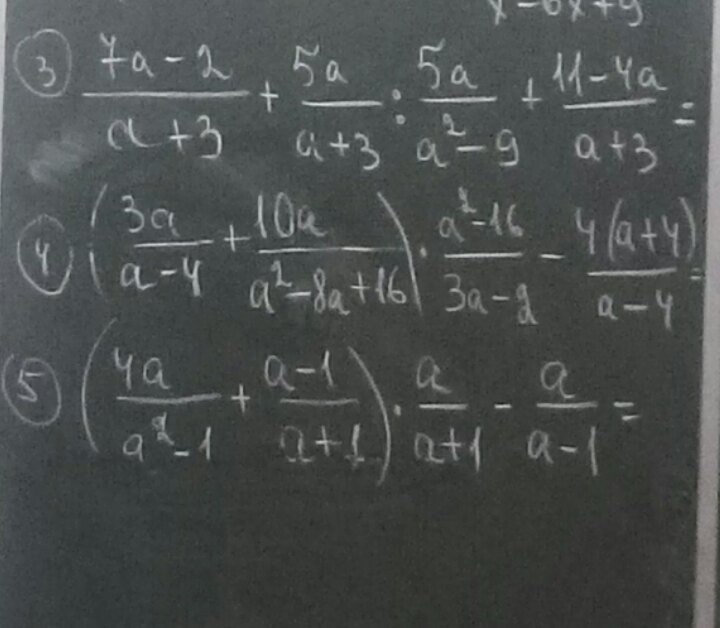 x-6x+9
3 (7a-2)/(a+3) + 5a/(a+3) : 5a/(a²-9) + (11-4a)/(a+3) =
4 (3a/(a-4) + 10a/(a²-8a+16)) · (a²-16)/(3a-2) - 4(a+4)/(a-4) =
5 (4a/(a²-1) + (a-1)/(a+1)) · a/(a+1) - a/(a-1) =